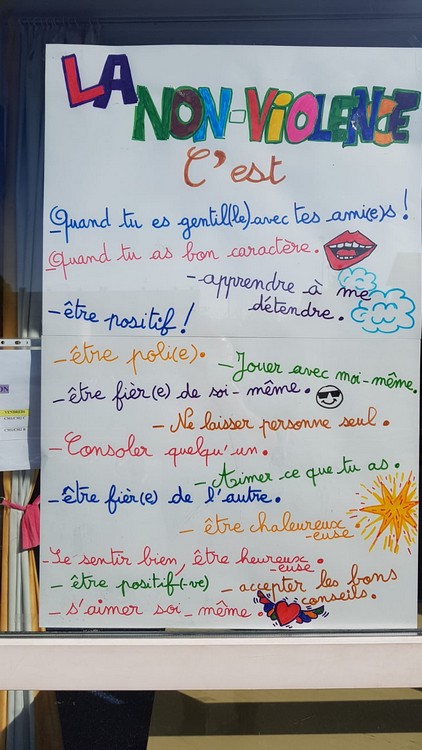 LA
NON-ViOLENCE
C'est
Quand tu es gentil(le) avec tes ami(e)s !
Quand tu as bon caractère.
- apprendre à me
détendre.
- être positif !
- être poli(e).
- Jouer avec moi-même.
- être fièr(e) de soi-même.
- Ne laisser personne seul.
- Consoler quelqu'un.
- Aimer ce que tu as.
- être fièr(e) de l'autre.
- être chaleureux
-euse.
- Se sentir bien, être heureux
-euse.
- être positif(-ve)
- accepter les bons
conseils.
- s'aimer soi-même.